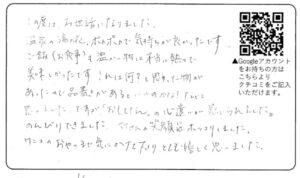 この度は、お世話になりました。
温泉の湯加減、ポカポカで気持ちが良かったです
ご飯(お食事)も温かい物は本当に熱くて
美味しかったです これは何?と思った物が
あったので品書きがあると
思いました。ですが「おもてなし」の心遣いが感じられました。
のんびりできました。 笑顔にホッコリしました。
とても嬉しく思いました。
▲Googleアカウント
をお持ちの方は
こちらより
クチコミをご記入
いただけます。